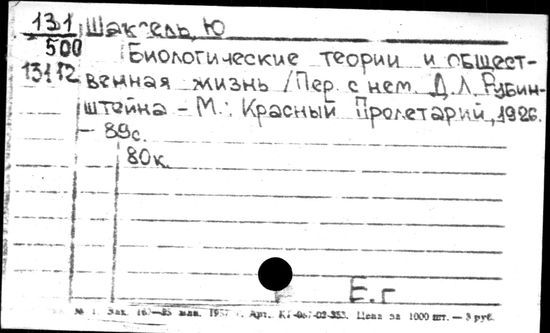 131 Шаксель, Ю
500 Биологические теории и общест-
13172 венная жизнь /Пер. с нем. Д.Л. Рубин-
штейна – М.: Красный Пролетарий, 1926.
– 89с.
80к.
Е.г
№ 1. Зак. 163—85 1957 г. Арт. Цена за 1000 шт. — 3 руб.